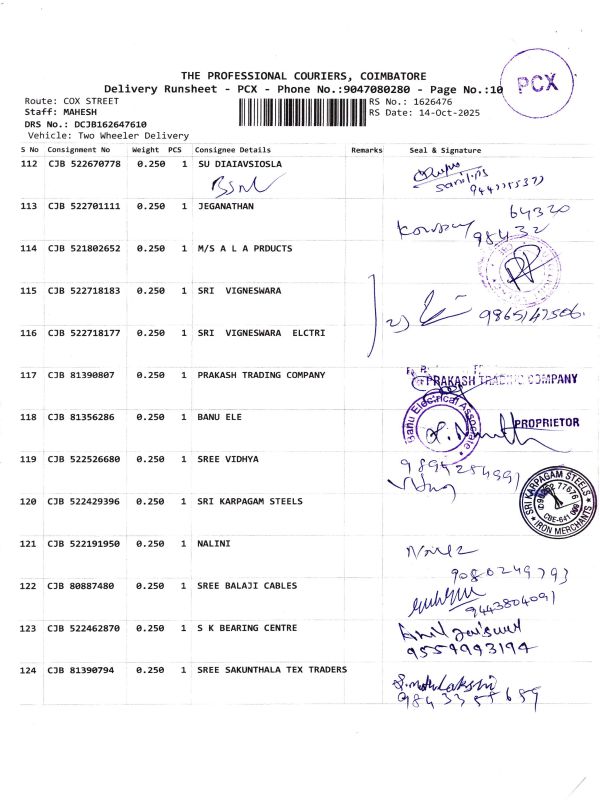 THE PROFESSIONAL COURIERS, COIMBATORE
Delivery Runsheet - PCX - Phone No.:9047080280 - Page No.:10
PCX
Route: COX STREET
RS No.: 1626476
Staff: MAHESH
RS Date: 14-Oct-2025
DRS No.: DCJB162647610
Vehicle: Two Wheeler Delivery
S No Consignment No Weight PCS Consignee Details Remarks Seal & Signature
112 CJB 522670778 0.250 1 SU DIAIAVSIOSLA
113 CJB 522701111 0.250 1 JEGANATHAN 64320
98432
114 CJB 521802652 0.250 1 M/S A L A PRDUCTS
115 CJB 522718183 0.250 1 SRI VIGNESWARA
9865147506.
116 CJB 522718177 0.250 1 SRI VIGNESWARA ELCTRI
117 CJB 81390807 0.250 1 PRAKASH TRADING COMPANY PRAKASH TRADING COMPANY
118 CJB 81356286 0.250 1 BANU ELE Banu Electrical Associate PROPRIETOR
119 CJB 522526680 0.250 1 SREE VIDHYA
120 CJB 522429396 0.250 1 SRI KARPAGAM STEELS SRI KARPAGAM STEELS IRON MERCHANTS
121 CJB 522191950 0.250 1 NALINI
9080249793
122 CJB 80887480 0.250 1 SREE BALAJI CABLES
9443804091
123 CJB 522462870 0.250 1 S K BEARING CENTRE
9559993194
124 CJB 81390794 0.250 1 SREE SAKUNTHALA TEX TRADERS